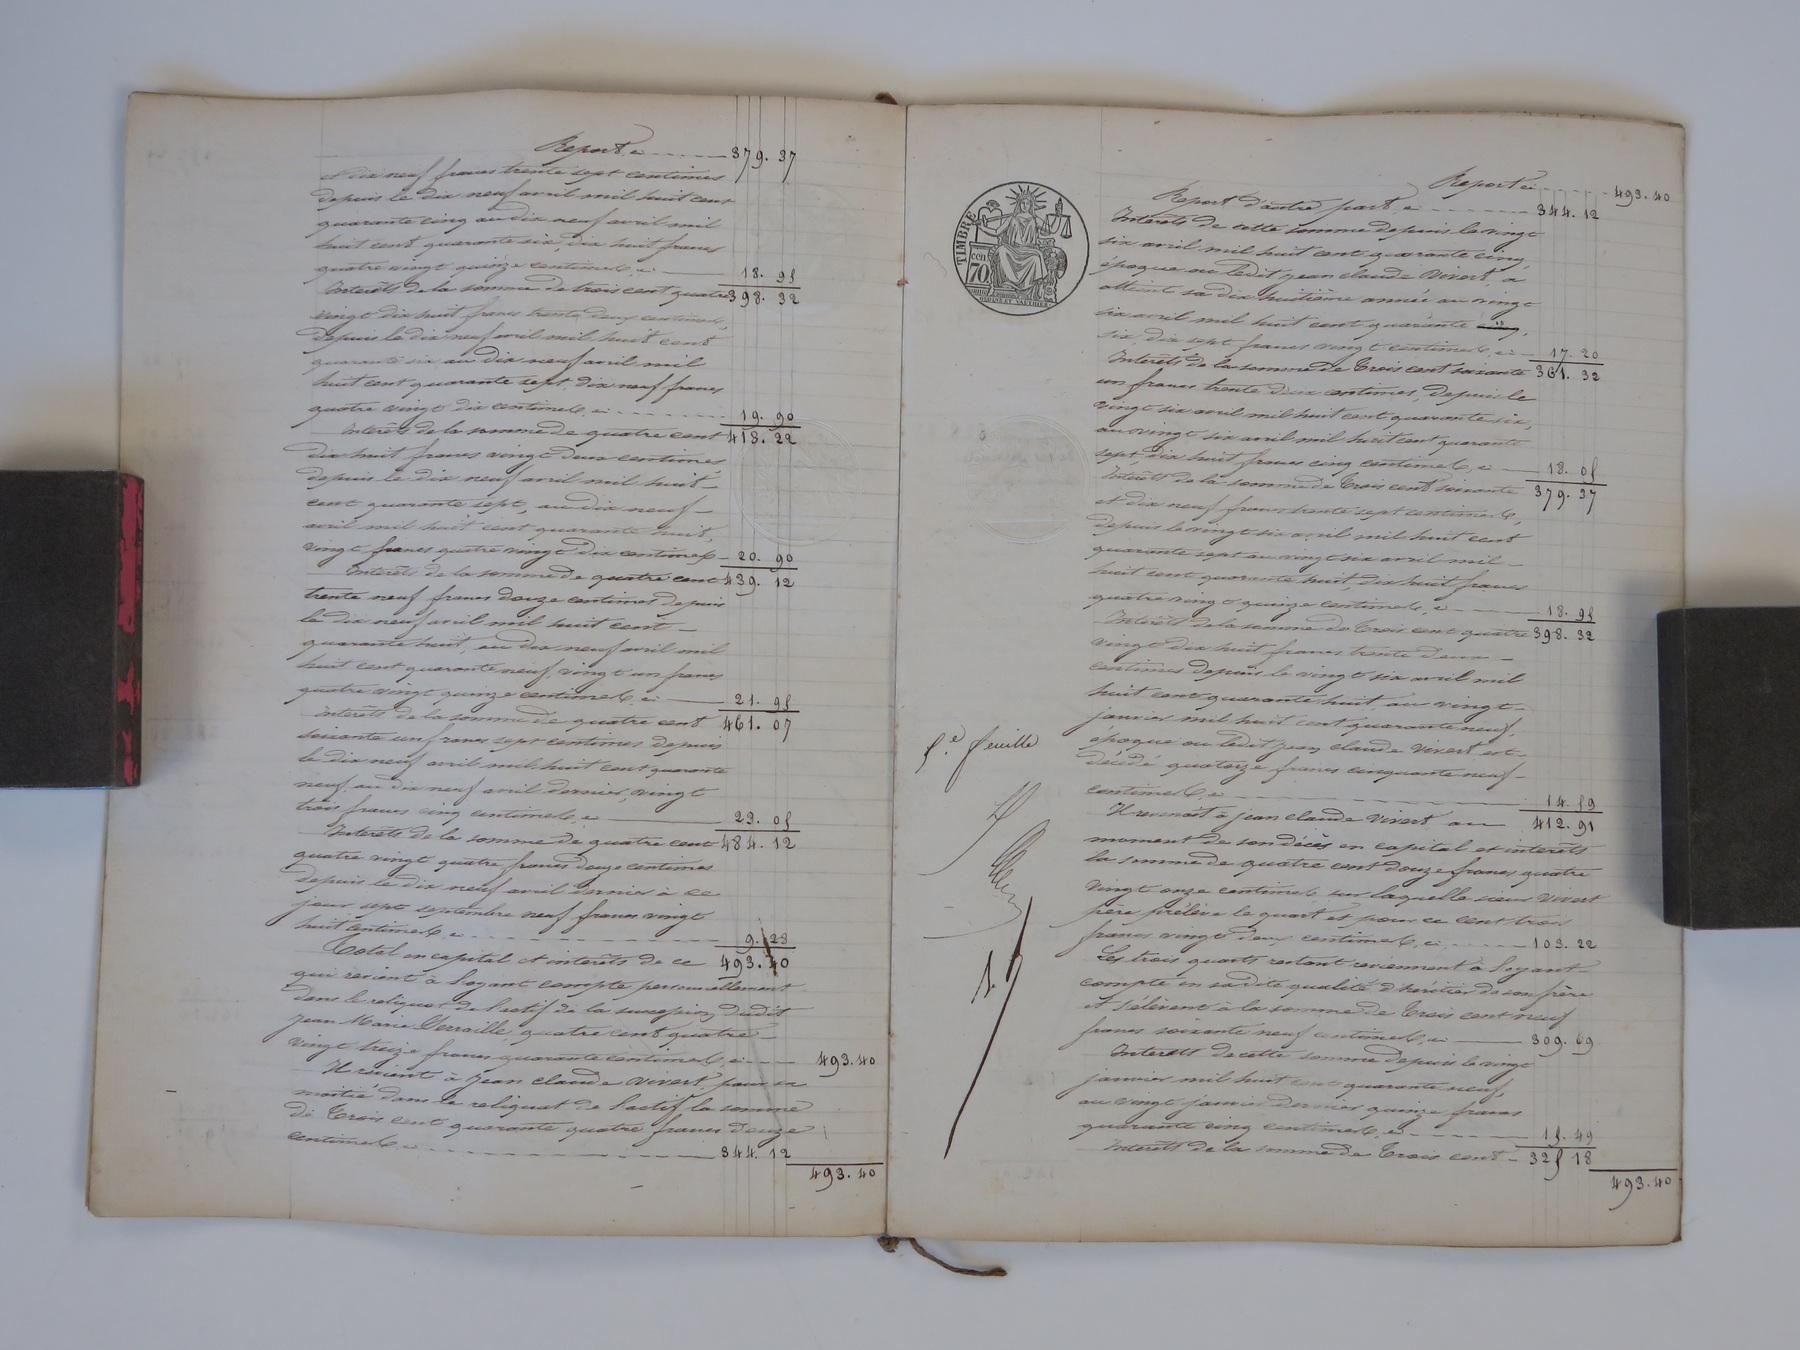 Report, ci - - - - - 379. 37
et dix neuf francs trente sept centimes
depuis le dix neuf avril mil huit cent
quarante cinq au dix neuf avril mil
huit cent quarante six, dix huit francs
quatre vingt quinze centimes, ci 18. 95
Intérêts de la somme de trois cent quatre 398. 32
vingt dix huit francs trente deux centimes,
depuis le dix neuf avril mil huit cent
quarante six au dix neuf avril mil
huit cent quarante sept, dix neuf francs
quatre vingt dix centimes, ci - - - - - 19. 90
Intérêts de la somme de quatre cent 418. 22
dix huit francs vingt deux centimes
depuis le dix neuf avril mil huit
cent quarante sept, au dix neuf
avril mil huit cent quarante huit,
vingt francs quatre vingt dix centimes 20. 90
Intérêts de la somme de quatre cent 439. 12
trente neuf francs douze centimes depuis
le dix neuf avril mil huit cent
quarante huit, au dix neuf avril mil
huit cent quarante neuf, vingt un francs
quatre vingt quinze centimes, ci 21. 95
Intérêts de la somme de quatre cent 461. 07
soixante un francs sept centimes depuis
le dix neuf avril mil huit cent quarante
neuf, au dix neuf avril dernier, vingt
trois francs cinq centimes, ci 23. 05
Intérêts de la somme de quatre cent 484. 12
quatre vingt quatre francs douze centimes
depuis le dix neuf avril dernier à ce
jour sept septembre neuf francs vingt
huit centimes, ci - - - - - 9. 28
Total en capital et intérêts de ce 493. 40
qui revient à l'oyant compte personnellement
dans le reliquat de l'actif de la succession dudit
Jean Marie Verraille, quatre cent quatre
vingt treize francs quarante centimes, ci 493. 40
Il revient à Jean Claude Vivert, pour sa
moitié dans ce reliquat de l'actif la somme
de Trois cent quarante quatre francs douze
centimes, ci - - - - - 344. 12
493. 40
Report ci - - - - - 493. 40
Report d'autre part, ci - - - - - 344. 12
TIMBRE
70 cen
Intérêts de cette somme depuis le vingt
six avril mil huit cent quarante cinq,
époque ou ledit Jean Claude Vivert, a
atteint sa dix huitième année au vingt
six avril mil huit cent quarante
six, dix sept francs vingt centimes, ci 17. 20
Intérêts de la somme de Trois cent soixante 361. 32
un francs trente deux centimes, depuis le
vingt six avril mil huit cent quarante six,
au vingt six avril mil huit cent quarante
sept, dix huit francs cinq centimes, ci 18. 05
Intérêts de la somme de Trois cent soixante 379. 37
et dix neuf francs trente sept centimes,
depuis le vingt six avril mil huit cent
quarante sept au vingt six avril mil
huit cent quarante huit, dix huit francs
quatre vingt quinze centimes, ci 18. 95
Intérêts de la somme de Trois cent quatre 398. 32
vingt dix huit francs trente deux
centimes depuis le vingt six avril mil
huit cent quarante huit, au vingt
janvier mil huit cent quarante neuf,
5.e feuille
époque ou ledit Jean Claude Vivert est
décédé quatorze francs cinquante neuf
centimes, ci - - - - - 14. 59
Il revenait à Jean Claude Vivert au 412. 91
moment de son décès en capital et intérêts
la somme de quatre cent douze francs quatre
vingt onze centimes, sur laquelle sieur Vivert
père prélève le quart et pour ce cent trois
francs vingt deux centimes, ci - - - - - 103. 22
Les trois quarts restant reviennent à l'oyant
compte en sa dite qualité d'héritier de son frère
et s'élèvent à la somme de Trois cent neuf
francs soixante neuf centimes, ci 309. 69
Intérêts de cette somme depuis le vingt
janvier mil huit cent quarante neuf,
au vingt janvier dernier quinze francs
quarante cinq centimes, ci - - - - - 15. 49
Intérêts de la somme de Trois cent 325 18
493. 40